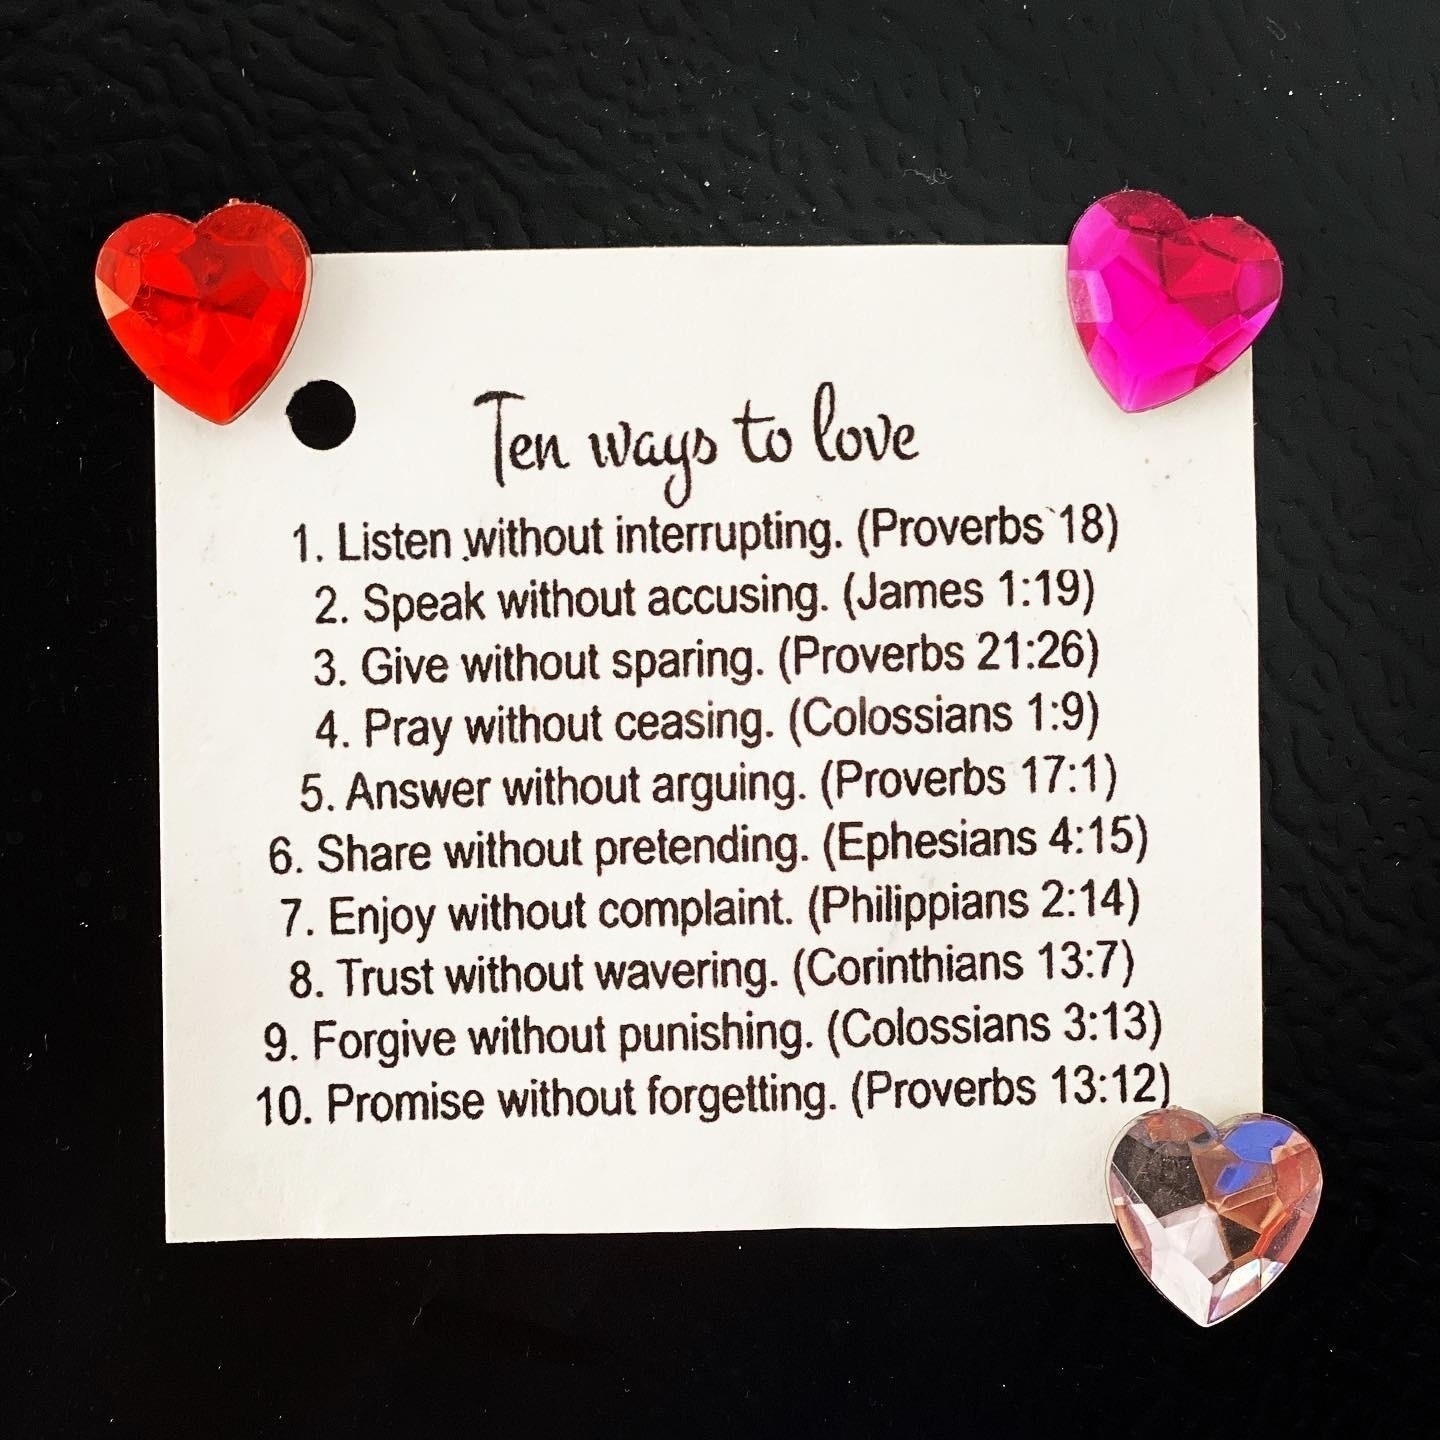 Ten ways to love
1. Listen without interrupting. (Proverbs 18)
2. Speak without accusing. (James 1:19)
3. Give without sparing. (Proverbs 21:26)
4. Pray without ceasing. (Colossians 1:9)
5. Answer without arguing. (Proverbs 17:1)
6. Share without pretending. (Ephesians 4:15)
7. Enjoy without complaint. (Philippians 2:14)
8. Trust without wavering. (Corinthians 13:7)
9. Forgive without punishing. (Colossians 3:13)
10. Promise without forgetting. (Proverbs 13:12)